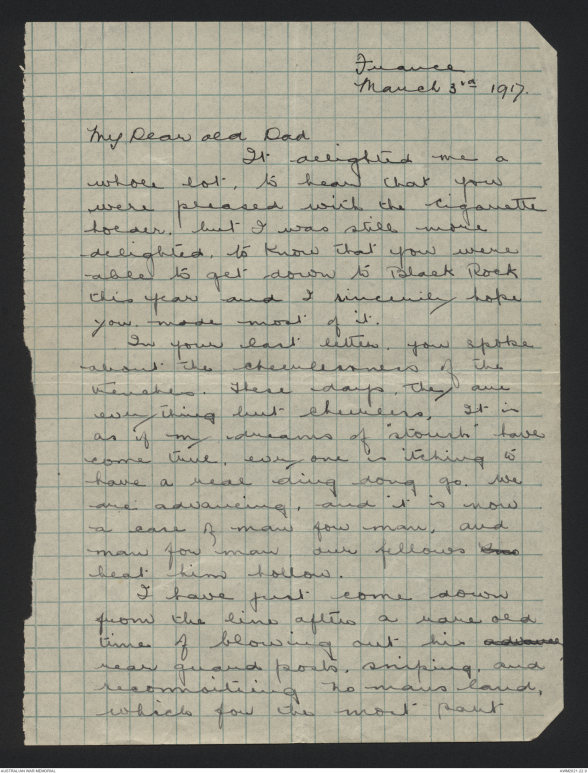 France
March 3rd 1917.
My Dear old Dad
It delighted me a
whole lot, to hear that you
were pleased with the cigarette
holder, but I was still more
delighted, to know that you were
able to get down to Black Rock
this year and I sincerely hope
you made most of it.
In your last letter, you spoke
about the cheerlessness of the
trenches. These days, they are
everything but cheerless, It is
as if my dreams of "stoush" have
come true, every one is itching to
have a real ding dong go. We
are advancing, and it is now
a case of man for man, and
man for man our fellows
beat him hollow.
I have just come down
from the line after a rare old
time of blowing out his advance
rear guard posts, sniping, and
reconnoitiring No mans land,
which for the most part
AUSTRALIAN WAR MEMORIAL